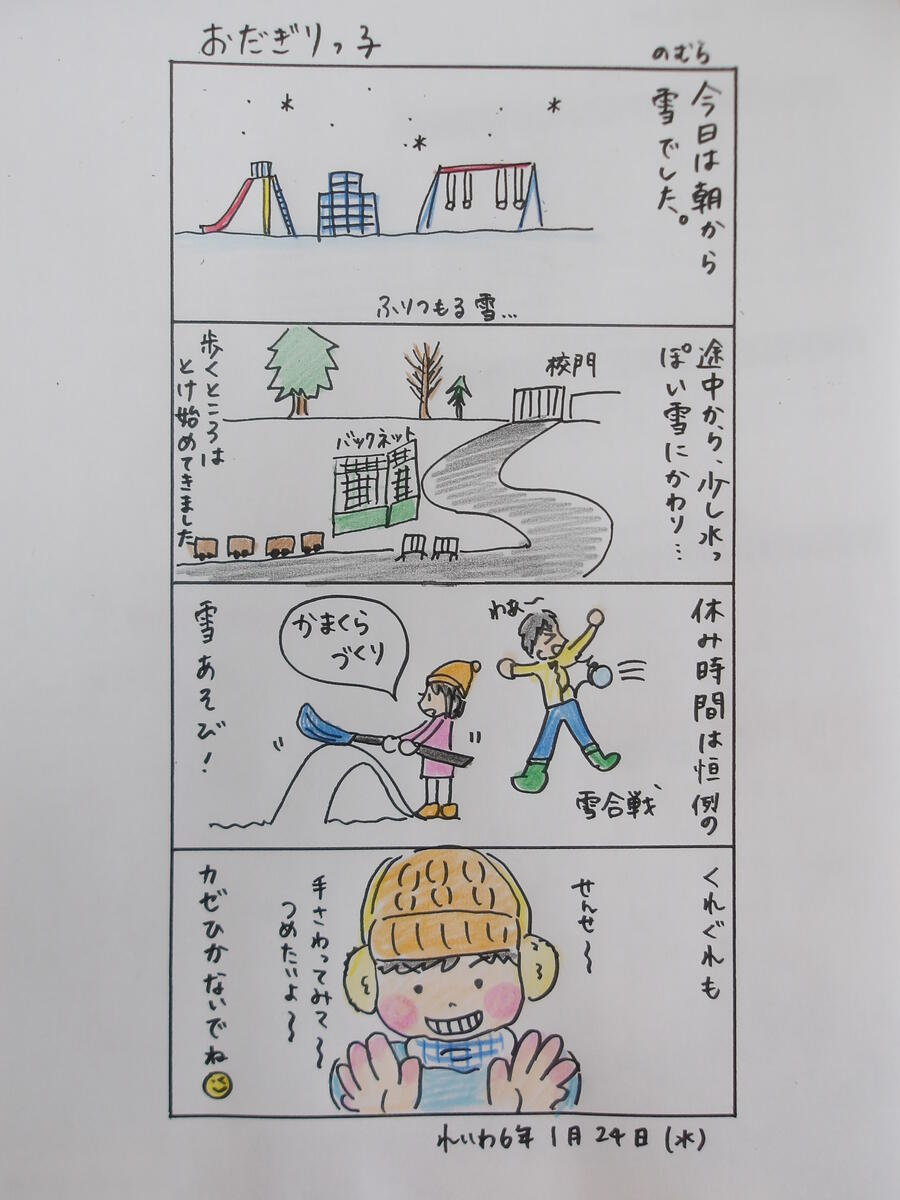 おだぎりっ子
のむら
今日は朝から
雪でした。
ふりつもる雪…
途中から、少し水っ
ぽい雪にかわり…
校門
バックネット
歩くところは
とけ始めてきました
休み時間は恒例の
わあ〜
雪合戦
かまくら
づくり
雪あそび！
くれぐれも
せんせ〜
手さわってみて〜
つめたいよ〜
カゼひかないでね
れいわ6年 1月 24日 (水)